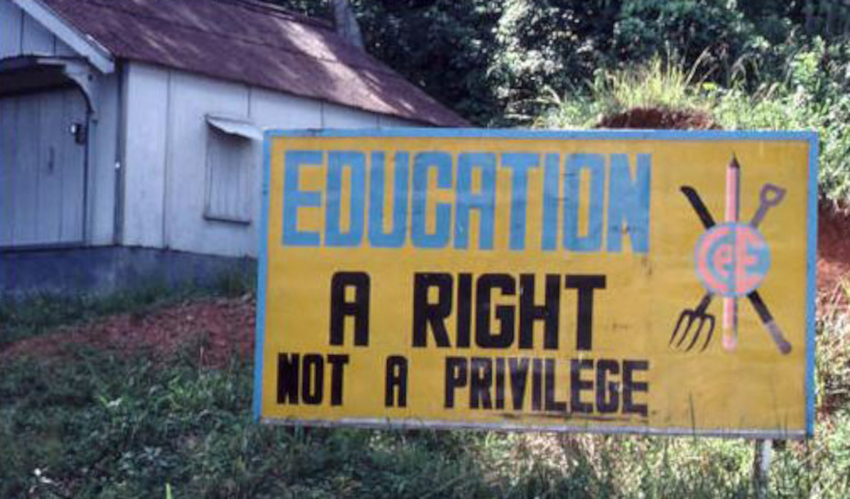 EDUCATION
A RIGHT
NOT A PRIVILEGE
CPE